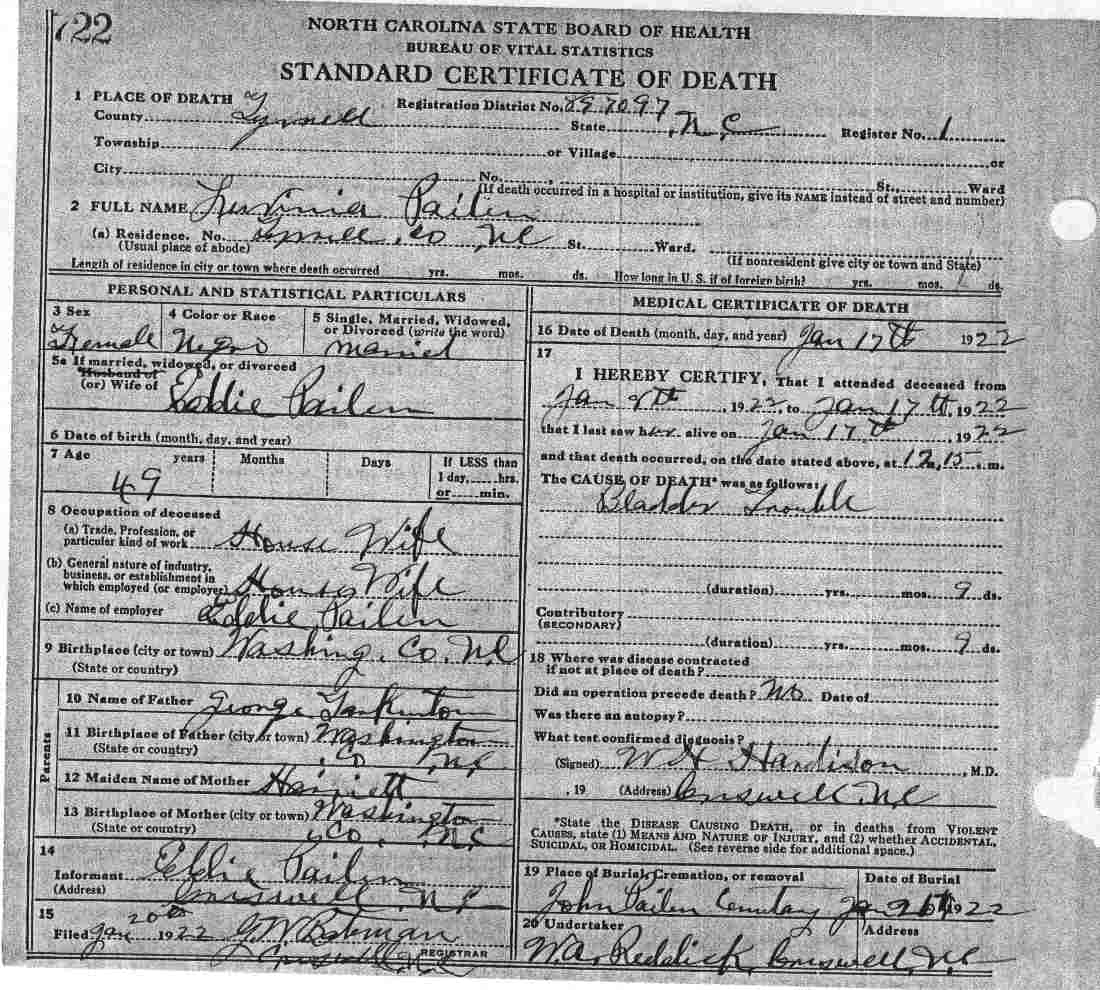 722
NORTH CAROLINA STATE BOARD OF HEALTH
BUREAU OF VITAL STATISTICS
STANDARD CERTIFICATE OF DEATH
1 PLACE OF DEATH Registration District No. 897097
County Tyrrell State N.C Register No. 1
Township or Village or
City No. St., Ward
(If death occurred in a hospital or institution, give its NAME instead of street and number)
2 FULL NAME Pailen
(a) Residence. No. Tyrrell Co NC St. Ward.
(Usual place of abode) (If nonresident give city or town and State)
Length of residence in city or town where death occurred yrs. mos. ds. How long in U. S. if of foreign birth? yrs. mos. ds.
PERSONAL AND STATISTICAL PARTICULARS
3 Sex 4 Color or Race 5 Single, Married, Widowed,
or Divorced (write the word)
Female Negro Married
5a If married, widowed, or divorced
Husband of
(or) Wife of Eddie Pailen
6 Date of birth (month, day, and year)
7 Age years Months Days If LESS than
1 day, hrs.
or min.
49
8 Occupation of deceased
(a) Trade, Profession, or
particular kind of work House Wife
(b) General nature of industry,
business, or establishment in
which employed (or employer) House Wife
(c) Name of employer Eddie Pailen
9 Birthplace (city or town) Washing. Co. N.C
(State or country)
Parents
10 Name of Father George
11 Birthplace of Father (city or town) Washington
(State or country) Co N.C
12 Maiden Name of Mother Harriett
13 Birthplace of Mother (city or town) Washington
(State or country) Co, N.C
14
Informant Eddie Pailen
(Address) Creswell N C
15 20th
Filed Jan 1922 G W Bateman
REGISTRAR
Creswell N.C
MEDICAL CERTIFICATE OF DEATH
16 Date of Death (month, day, and year) Jan 17th 1922
17
I HEREBY CERTIFY, That I attended deceased from
Jan , 1922, to Jan 17th, 1922
that I last saw her alive on Jan 17th , 1922
and that death occurred, on the date stated above, at 12,15 m.
The CAUSE OF DEATH* was as follows:
Bladder Trouble
(duration) yrs. mos. 9 ds.
Contributory
(SECONDARY)
(duration) yrs. mos. 9 ds.
18 Where was disease contracted
if not at place of death?
Did an operation precede death? No Date of
Was there an autopsy?
What test confirmed diagnosis?
(Signed) W H Hardison , M.D.
, 19 (Address) Creswell N C
*State the DISEASE CAUSING DEATH, or in deaths from VIOLENT
CAUSES, state (1) MEANS AND NATURE OF INJURY, and (2) whether ACCIDENTAL,
SUICIDAL, OR HOMICIDAL. (See reverse side for additional space.)
19 Place of Burial, Cremation, or removal Date of Burial
John Pailen Cemetary Jan 1922
20 Undertaker Address
W.A. Reddick, Creswell, N.C